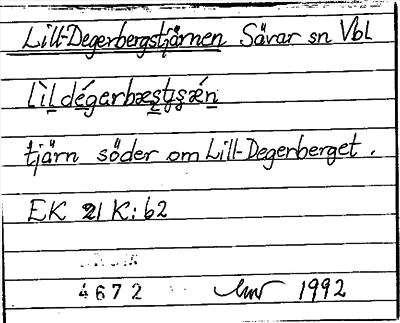 Lill-Degerbergstjärnen Sävar sn Vbl
lìl̲dégarbæs̲tʂǽn̲
tjärn söder om Lill-Degerberget.
EK 21 K:62
4672 1992